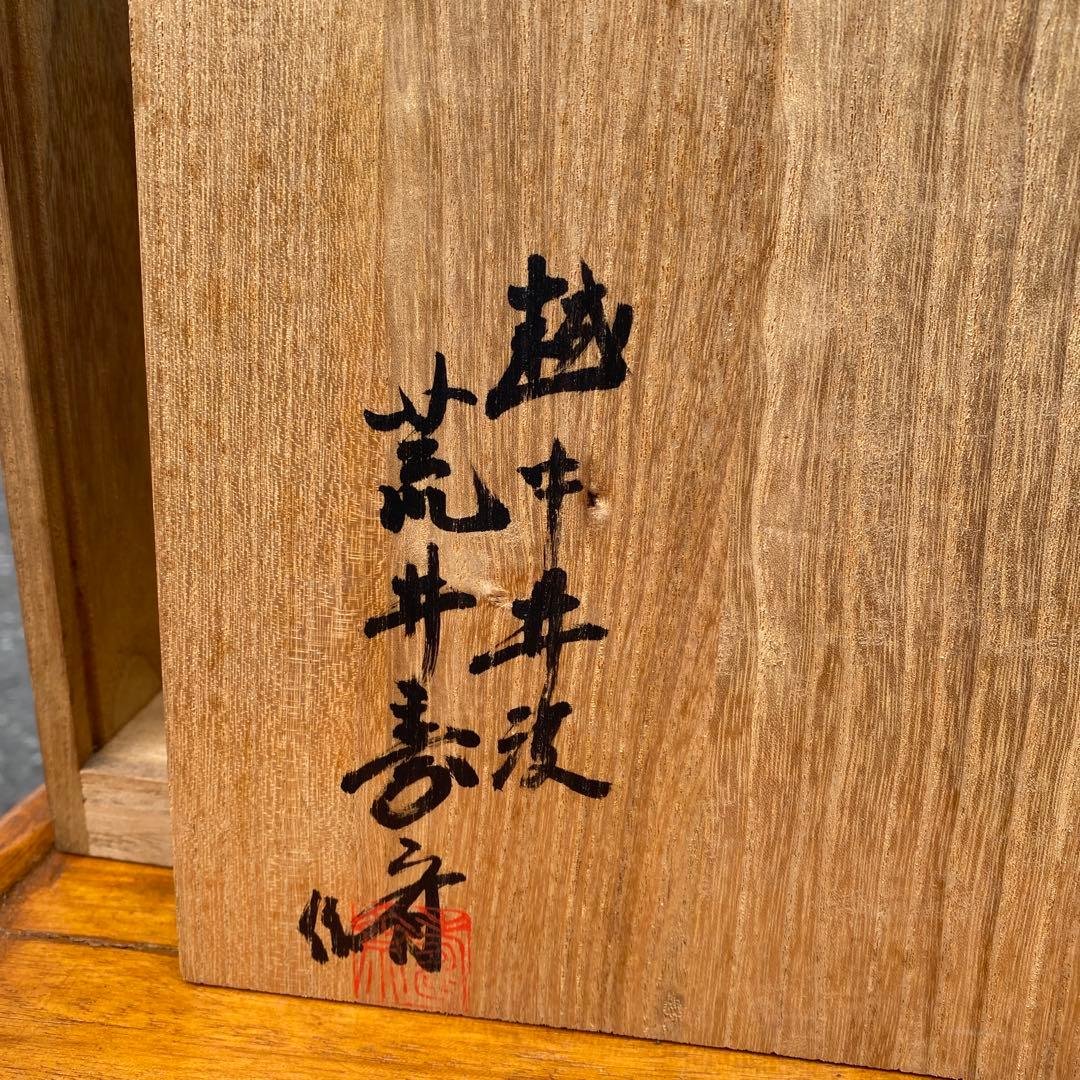 越中井波
荒井寿斎作